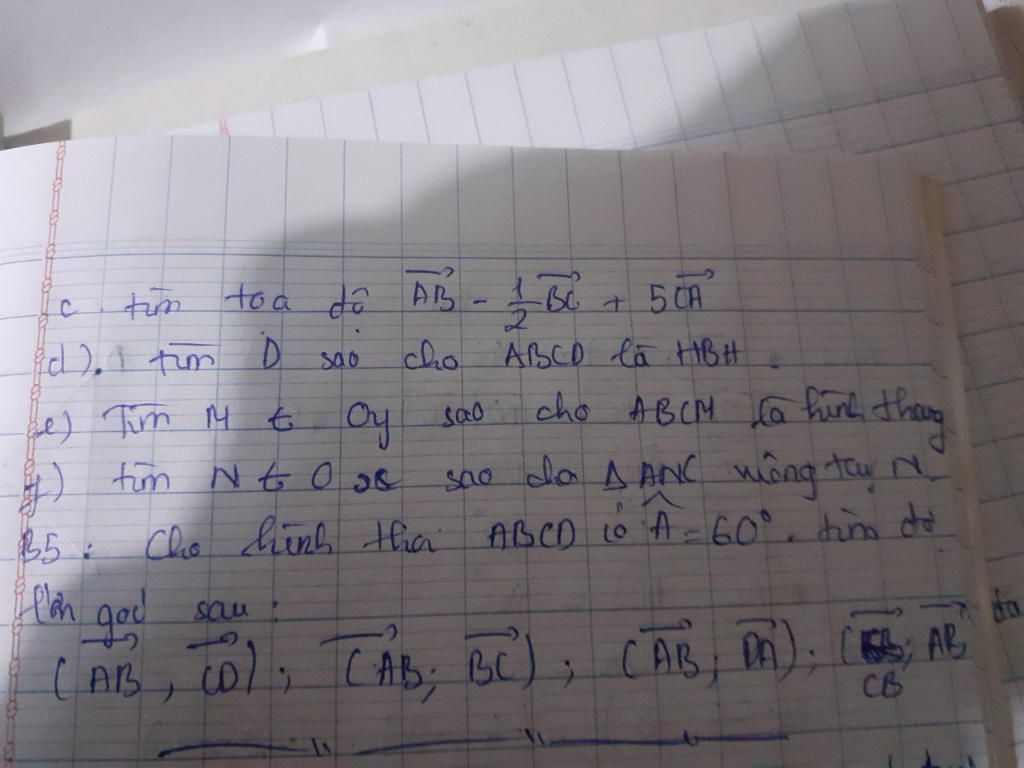 c. tìm toạ độ AB - 1/2 BC + 5CA
d). tìm D sao cho ABCD là HBH.
e) Tìm M ∈ Oy sao cho ABCM là hình thang
f) tìm N ∈ Ox sao cho Δ ANC vuông tại N
B5: Cho hình thoi ABCD có Â = 60°. tìm độ
lớn góc sau:
(AB, CD); (AB; BC); (AB; DA); (CB; AB